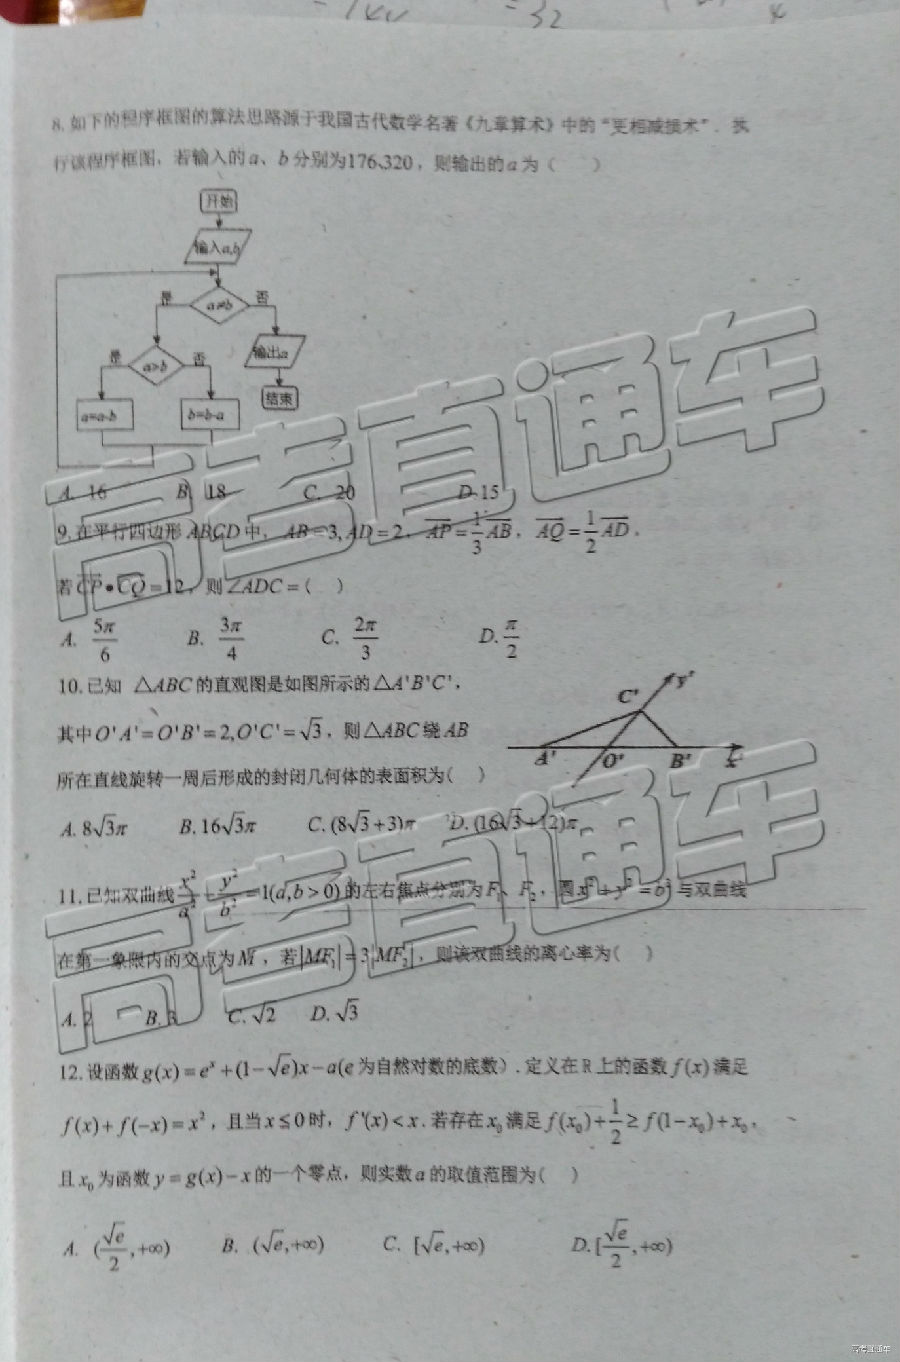 8. 如下的程序框图的算法思路源于我国古代数学名著《九章算术》中的“更相减损术”. 执
行该程序框图, 若输入的 a、b 分别为176、320, 则输出的 a 为 ( )
开始
输入a,b
是 a≠b 否
是 a>b 否 输出a
a=a-b b=b-a 结束
A. 16 B. 18 C. 20 D.15
9. 在平行四边形 ABCD 中, AB=3, AD=2, \overrightarrow{AP}=\frac{1}{3}\overrightarrow{AB}, \overrightarrow{AQ}=\frac{1}{2}\overrightarrow{AD},
若 \overrightarrow{CP}•\overrightarrow{CQ}=12, 则∠ADC=( )
A. \frac{5π}{6} B. \frac{3π}{4} C. \frac{2π}{3} D. \frac{π}{2}
10. 已知 △ABC 的直观图是如图所示的△A'B'C',
其中O'A'=O'B'=2,O'C'=√3, 则△ABC 绕 AB
所在直线旋转一周后形成的封闭几何体的表面积为( )
C' y' A' O' B' x'
A. 8√3π B.16√3π C. (8√3+3)π D. (16√3+12)π
11. 已知双曲线\frac{x^2}{a^2}-\frac{y^2}{b^2}=1(a,b>0) 的左右焦点分别为F_1、F_2, 圆x^2+y^2=b^2 与双曲线
在第一象限内的交点为M, 若|MF_1|=3|MF_2|, 则该双曲线的离心率为( )
A. 2 B. 3 C. √2 D. √3
12. 设函数g(x)=e^x+(1-√e)x-a(e 为自然对数的底数). 定义在 R 上的函数 f(x) 满足
f(x)+f(-x)=x^2, 且当x≤0时, f'(x)<x. 若存在x_0满足 f(x_0)+\frac{1}{2}≥f(1-x_0)+x_0,
且 x_0 为函数 y=g(x)-x 的一个零点, 则实数a 的取值范围为( )
A. (\frac{√e}{2},+∞) B. (√e,+∞) C. [√e,+∞) D. [\frac{√e}{2},+∞)
高考直通车
高考直通车
高考直通车